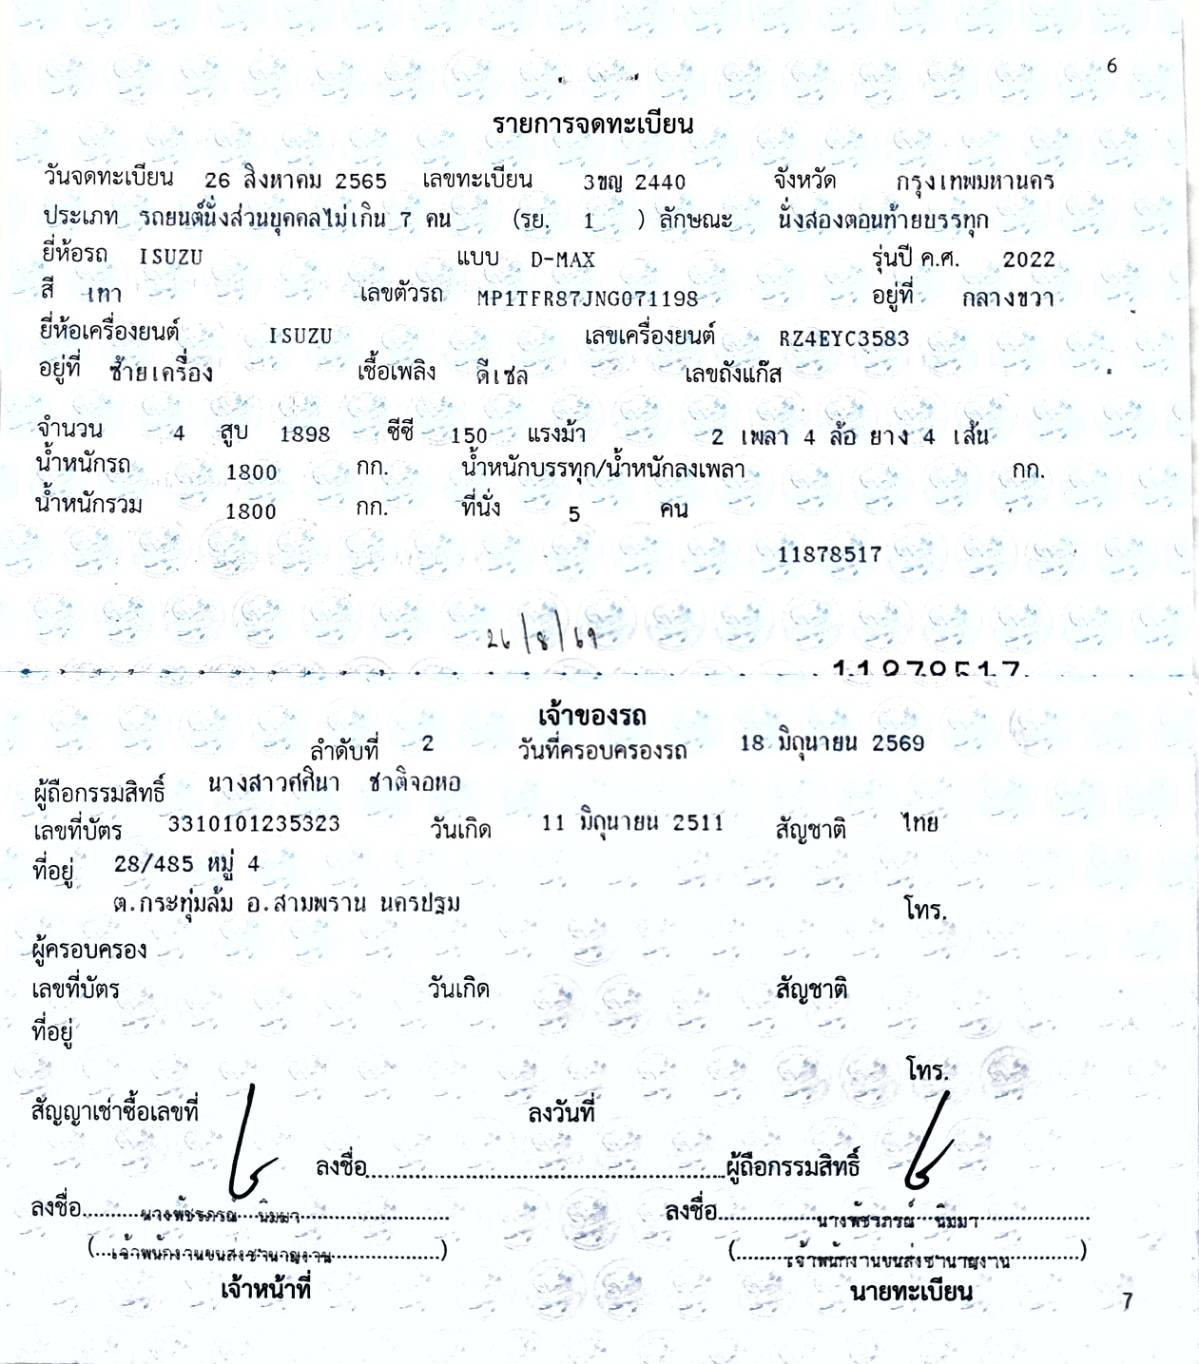 6
รายการจดทะเบียน
วันจดทะเบียน 26 สิงหาคม 2565 เลขทะเบียน 3ขญ 2440 จังหวัด กรุงเทพมหานคร
ประเภท รถยนต์นั่งส่วนบุคคลไม่เกิน 7 คน (รย. 1 ) ลักษณะ นั่งสองตอนท้ายบรรทุก
ยี่ห้อรถ ISUZU แบบ D-MAX รุ่นปี ค.ศ. 2022
สี เทา เลขตัวรถ MP1TFR87JNG071198 อยู่ที่ กลางขวา
ยี่ห้อเครื่องยนต์ ISUZU เลขเครื่องยนต์ RZ4EYC3583
อยู่ที่ ซ้ายเครื่อง เชื้อเพลิง ดีเซล เลขถังแก๊ส
จำนวน 4 สูบ 1898 ซีซี 150 แรงม้า 2 เพลา 4 ล้อ ยาง 4 เส้น
น้ำหนักรถ 1800 กก. น้ำหนักบรรทุก/น้ำหนักลงเพลา กก.
น้ำหนักรวม 1800 กก. ที่นั่ง 5 คน
11878517
26/8/69
เจ้าของรถ
ลำดับที่ 2 วันที่ครอบครองรถ 18 มิถุนายน 2569
ผู้ถือกรรมสิทธิ์ นางสาวศศินา ชาติจอหอ
เลขที่บัตร 3310101235323 วันเกิด 11 มิถุนายน 2511 สัญชาติ ไทย
ที่อยู่ 28/485 หมู่ 4
ต.กระทุ่มล้ม อ.สามพราน นครปฐม โทร.
ผู้ครอบครอง
เลขที่บัตร วันเกิด สัญชาติ
ที่อยู่
โทร.
สัญญาเช่าซื้อเลขที่ ลงวันที่
ลงชื่อ ผู้ถือกรรมสิทธิ์
ลงชื่อ นางพัชรภรณ์ นิมมา ลงชื่อ นางพัชรภรณ์ นิมมา
(เจ้าพนักงานขนส่งชำนาญงาน) (เจ้าพนักงานขนส่งชำนาญงาน)
เจ้าหน้าที่ นายทะเบียน
7